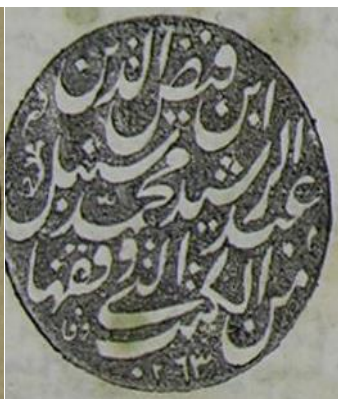 ابن فيض الدين
عبد الرشيد محمد سنبل
من الكتب الذي وقفها
في